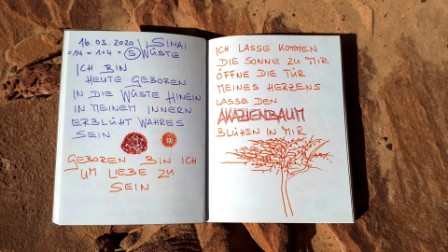 16.03.2020 SINAI
=14 = 1+4 = 5 WÜSTE
ICH BIN
HEUTE GEBOREN
IN DIE WÜSTE HINEIN
IN MEINEM INNERN
ERBLÜHT WAHRES
SEIN
GEBOREN BIN ICH
UM LIEBE ZU
SEIN
ICH LASSE KOMMEN
DIE SONNE ZU MIR
ÖFFNE DIE TÜR
MEINES HERZENS
LASSE DEN
AKAZIENBAUM
BLÜHEN IN MIR